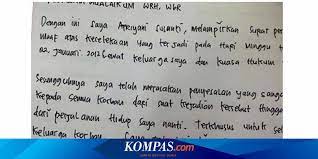 ALAIKUM WBH, WbR
Dengan ini Saya Apriyani Susanti, melampirkan Surat per
Maaf atas Kecelakaan Yang terjadi pada Hari Minggu t
22 Januari 2012 Lewat Keluarga saya dan Kuasa Hukum
Sesungguhnya Saya telah merasakan penyesalan yang sanga
Kepada Semua Korban dari saat kejadian tersebut Hingga
dari perjalanan Hidup Saya nanti. Terkhusus untuk se
Keluarga Korban
KOMPAS.com